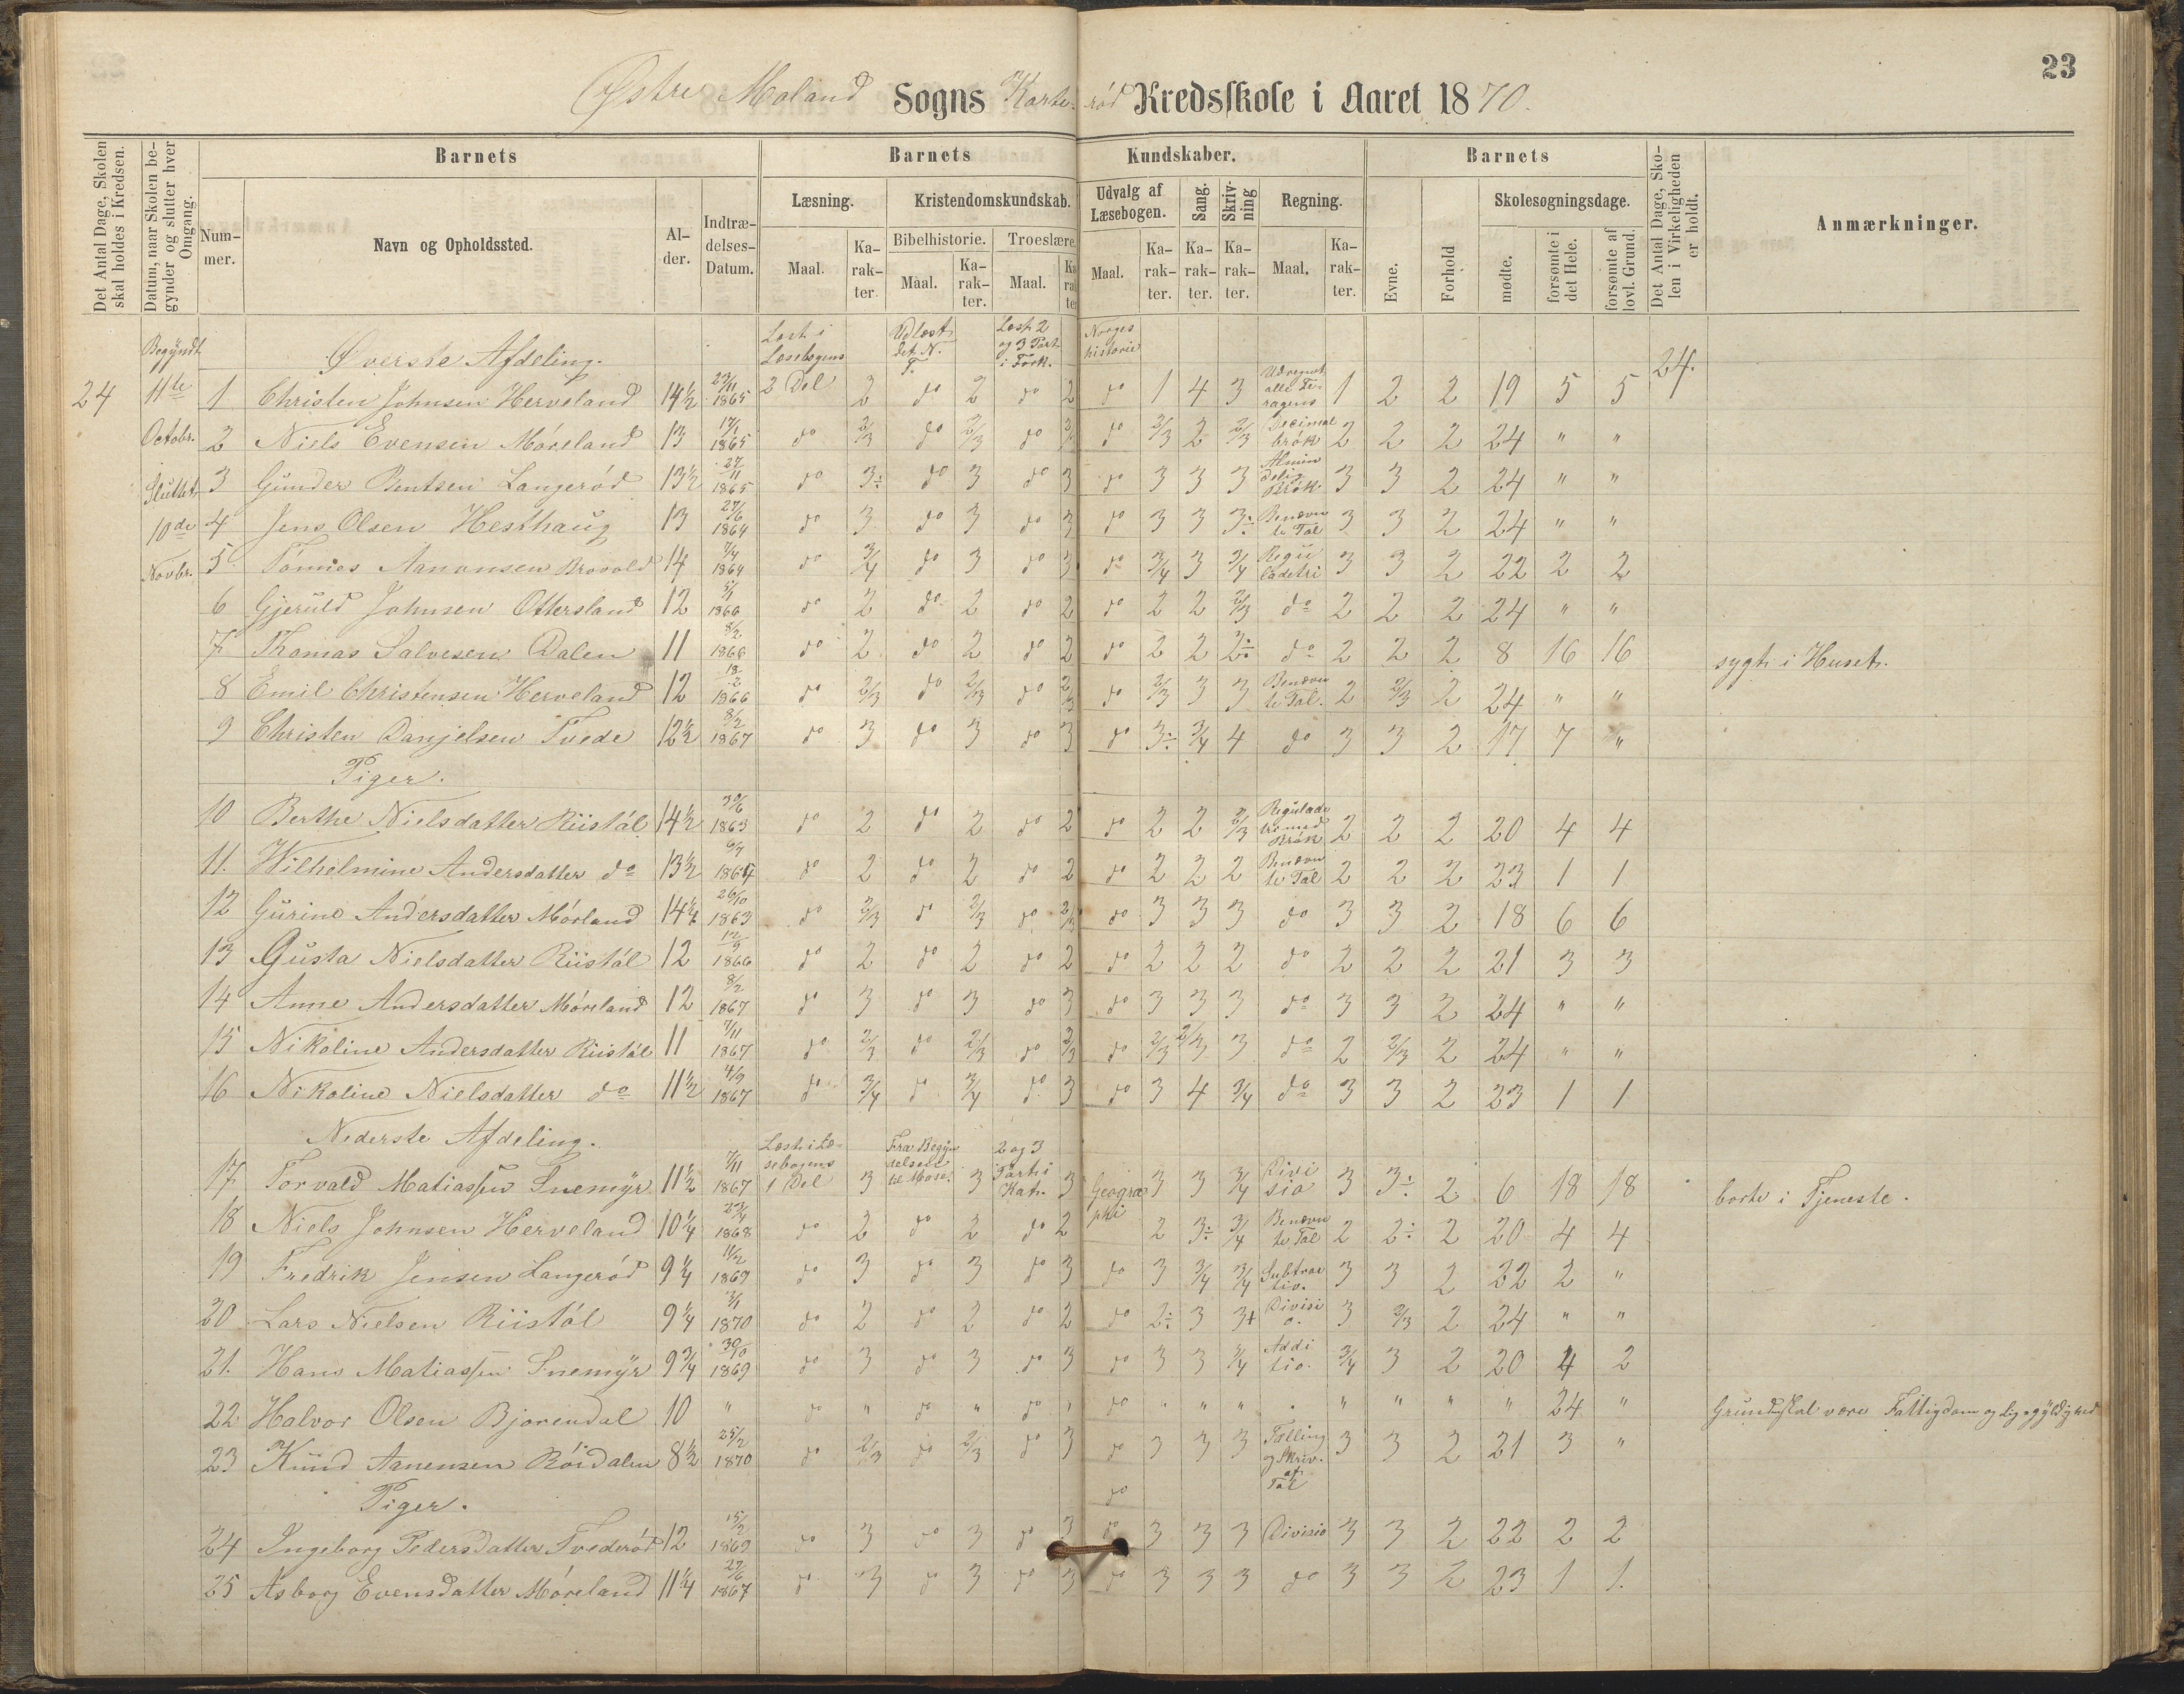 23
Østre Moland Sogns Karterød Kredsskole i Aaret 1870.
Det Antal Dage, Skolen skal holdes i Kredsen.
Datum, naar Skolen begynder og slutter hver Omgang.
Barnets
Nummer.
Navn og Opholdssted.
Alder.
Indtrædelses-Datum.
Barnets Kundskaber.
Læsning.
Maal.
Karakter.
Kristendomskundskab.
Bibelhistorie.
Maal.
Karakter.
Troeslære.
Maal.
Karakter
Udvalg af Læsebogen.
Maal.
Karakter.
Sang.
Karakter.
Skrivning
Karakter.
Regning.
Maal.
Karakter.
Barnets
Evne.
Forhold
Skolesøgningsdage.
mødte.
forsømte i det Hele.
forsømte af lovl. Grund.
Det Antal Dage, Skolen i Virkeligheden er holdt.
Anmærkninger.
24
Begyndt 11te Octobr. Sluttet 10de Novbr.
24.
Øverste Afdeling.
Læst i Læsebogens 2 Del
Udlæst det N. T.
Læst 2 og 3 Part i Fork.
Norges historie
1 Christen Johnsen Herveland 14½ 23/11 1865 2 do 2 do 2 do 1 4 3 Udregnet alle 1 2 2 19 5 5
2 Niels Evensen Móreland 13 17/1 1865 do 2/3 do 2/3 do 2/3 do 2/3 2 2/3 Decimal brók 2 2 2 24 " "
3 Gunder Bentsen Langeród 13½ 27/11 1865 do 3÷ do 3 do 3 do 3 3 3 Almindelig Brók 3 3 2 24 " "
4 Jens Olsen Hesthaug 13 27/6 1864 do 3 do 3 do 3 do 3 3 3÷ Benævnte Tal 3 3 2 24 " "
5 Tónnes Aanonsen Brovold 14 7/4 1864 do 3/4 do 3 do 3 do 3/4 3 3/4 Reguladetri 3 3 2 22 2 2
6 Gjeruld Johnsen Ottersland 12 3/1 1866 do 2 do 2 do 2 do 2 2 2/3 do 2 2 2 24 " "
7 Thomas Salvesen Dalen 11 8/2 1868 do 2 do 2 do 2 do 2 2 2÷ do 2 2 2 8 16 16 sygt i Huset.
8 Emil Christensen Herveland 12 18/2 1866 do 2/3 do 2/3 do 2/3 do 2/3 3 3 Benævnte Tal. 2 2/3 2 24 " "
9 Christen Danjelsen Tvede 12½ 8/2 1867 do 3 do 3 do 3 do 3÷ 3/4 4 do 3 3 2 17 7 "
Piger.
10 Berthe Nielsdatter Riistól 14½ 30/6 1863 do 2 do 2 do 2 do 2 2 2/3 Reguladetri med Brók 2 2 2 20 4 4
11. Wilhelmine Andersdatter do 13½ 1864 do 2 do 2 do 2 do 2 2 2 Benævnte Tal 2 2 2 23 1 1
12 Gurine Andersdatter Mórland 14¼ 26/10 1863 do 2/3 do 2/3 do 2/3 do 3 3 3 do 3 3 2 18 6 6
13 Gusta Nielsdatter Riistól 12 12/9 1866 do 2 do 2 do 2 do 2 2 2 do 2 2 2 21 3 3
14 Anne Andersdatter Móreland 12 8/2 1867 do 3 do 3 do 3 do 3 3 3 do 3 3 2 24 " "
15 Nikoline Andersdatter Riistól 11 7/11 1867 do 2/3 do 2/3 do 2/3 do 2/3 2/3 3 do 2 2/3 2 24 " "
16 Nikoline Nielsdatter do 11½ 4/9 1867 do 3/4 do 3/4 do 3 do 3 4 3/4 do 3 3 2 23 1 1
Nederste Afdeling.
Læst i Læsebogens 1 Del
Fra Begyndelsen til Mose.
2 og 3 Part i Kat.
17 Torvald Matiassen Snemyr 11½ 7/11 1867 3 3 3 Geographi 3 3 3/4 Divisio 3 3÷ 2 6 18 18 borte i Tjeneste.
18 Niels Johnsen Herveland 10¼ 23/4 1868 do 2 do 2 do 2 2 3÷ 3/4 Benævnte Tal 2 2÷ 2 20 4 4
19 Fredrik Jensen Langeród 9¼ 11/2 1869 do 3 do 3 do 3 do 3 3/4 3/4 Subtraction. 3 3 2 22 2 "
20 Lars Nielsen Riistól 9¼ 3/1 1870 do 2 do 2 do 2 do 2÷ 3 3+ Divisio. 3 2/3 2 24 " "
21. Hans Matiassen Snemyr 9¾ 30/10 1869 do 3 do 3 do 3 do 3 3 3/4 Additio. 3/4 3 2 20 4 2
22 Halvor Olsen Bjorendal 10 " do " do " do " do " " " " " " " 24 " Grunden skal være Fattigdom og Ligegyldighed
23 Knud Aanensen Róidalen 8½ 25/2 1870 do 2/3 do 2/3 do 3 do 3 3 3 Tælling og Skriv. af Tal 3 3 2 21 3 "
Piger.
do
24 Ingeborg Pedersdatter Tvederód 12 15/2 1869 do 3 do 3 do 3 do 3 3 3 Divisio 3 3 2 22 2 2
25 Asborg Evensdatter Móreland 11¼ 27/6 1867 do 3 do 3 do 3 do 3 3 3 do 3 3 2 23 1 1.